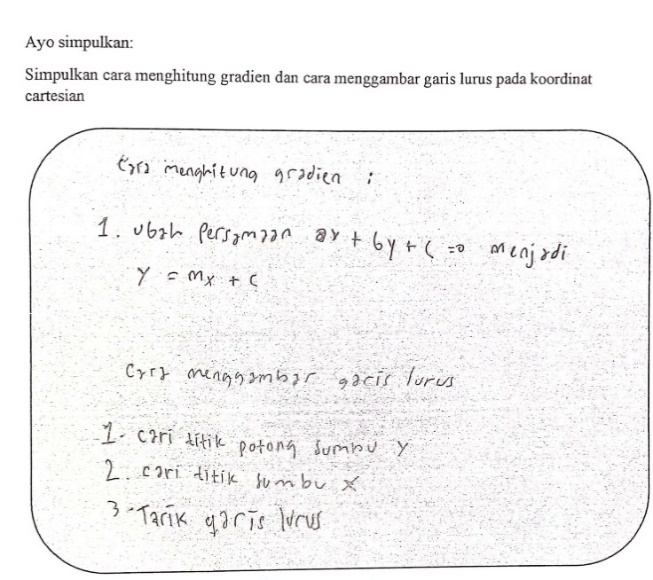 Ayo simpulkan:
Simpulkan cara menghitung gradien dan cara menggambar garis lurus pada koordinat
cartesian
Cara menghitung gradien :
1. Ubah Persamaan ax + by + c = 0 menjadi
y = mx + c
Cara menggambar garis lurus
1. cari titik potong sumbu y
2. cari titik sumbu x
3. Tarik garis lurus